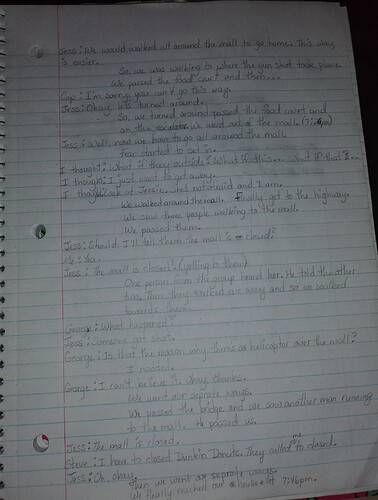 Jess: We would walked all around the mall to go home. This way
is easier.
So, we was walking to where the gun shot took place.
We passed the food court and then...
Cop: I'm sorry, you can't go this way.
Jess: Okay, let's turned around.
So, we turned around passed the food court and
on the escalator. We went out of the mall. (7:16pm)
Jess: Well, now we have to go all around the mall.
Fear started to set in.
I thought: What if they outside? What if this... what if that?...
I thought: I just want to get away.
I thought: look at Jessie. She's not afraid and I am.
We walked around the mall. Finally got to the highway.
We saw three people walking to the mall.
We passed them.
Jess: Should I'll tell them the mall is closed?
Me: Yea.
Jess: The mall is closed! (yelling to them)
One person from the group heard her. He told the other
two. Then they walked our way and so we walked
towards them.
George: What happened?
Jess: Someone got shot.
George: Is that the reason why there's a helicopter over the mall?
I nodded.
George: I can't believe it. Okay, thanks.
We went our seprate ways.
We passed the bridge and we saw another man running
to the mall. He passed us.
Jess: The mall is closed.
Steve: I have to closed Dunkin Donuts. They called me to closed.
Jess: Oh, okay.
Then we went our seprate ways.
We finally reached our house at 7:46pm.